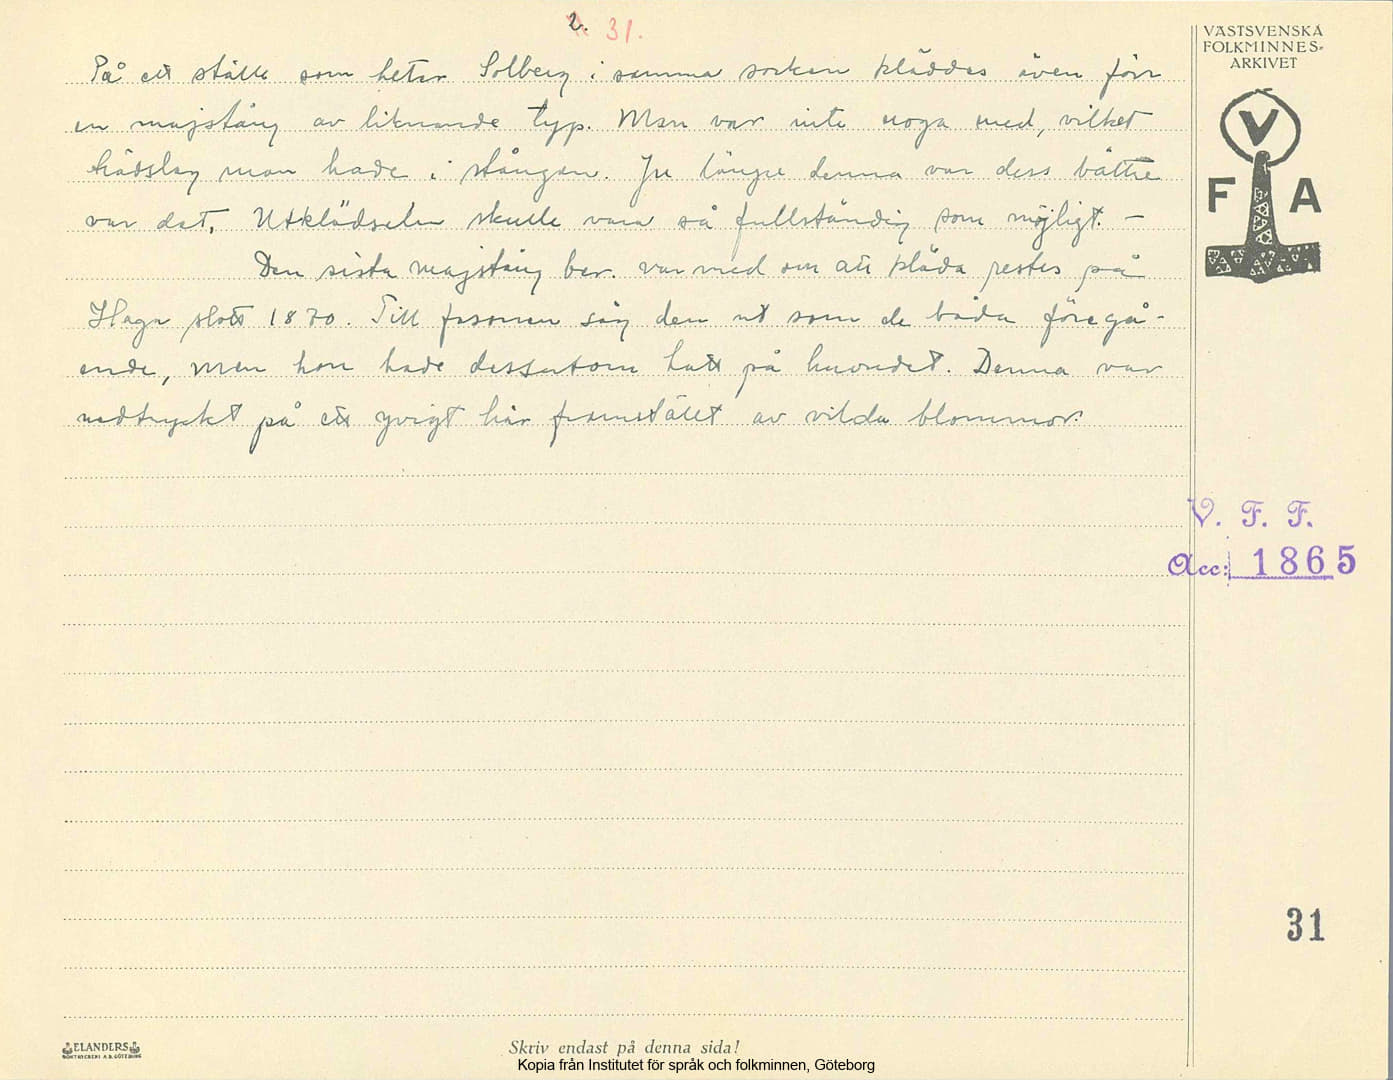 2. 31.
På ett ställe som heter Solberg i samma socken kläddes även förr
en majstång av liknande typ. Man var inte noga med, vilket
trädslag man hade i stången. Ju längre denna var dess bättre
var det. Utklädseln skulle vara så fullständig som möjligt. –
Den sista majstång ber. var med om att kläda restes på
Haga slott 1870. Till fasonen såg den ut som de båda föregå-
ende, men hon hade dessutom hatt på huvudet. Denna var
nedtryckt på ett yvigt hår framställt av vilda blommor.
VÄSTSVENSKA
FOLKMINNES-
ARKIVET
V
F A
V. F. F.
Acc: 1865
31
ELANDERS
Skriv endast på denna sida!
Kopia från Institutet för språk och folkminnen, Göteborg